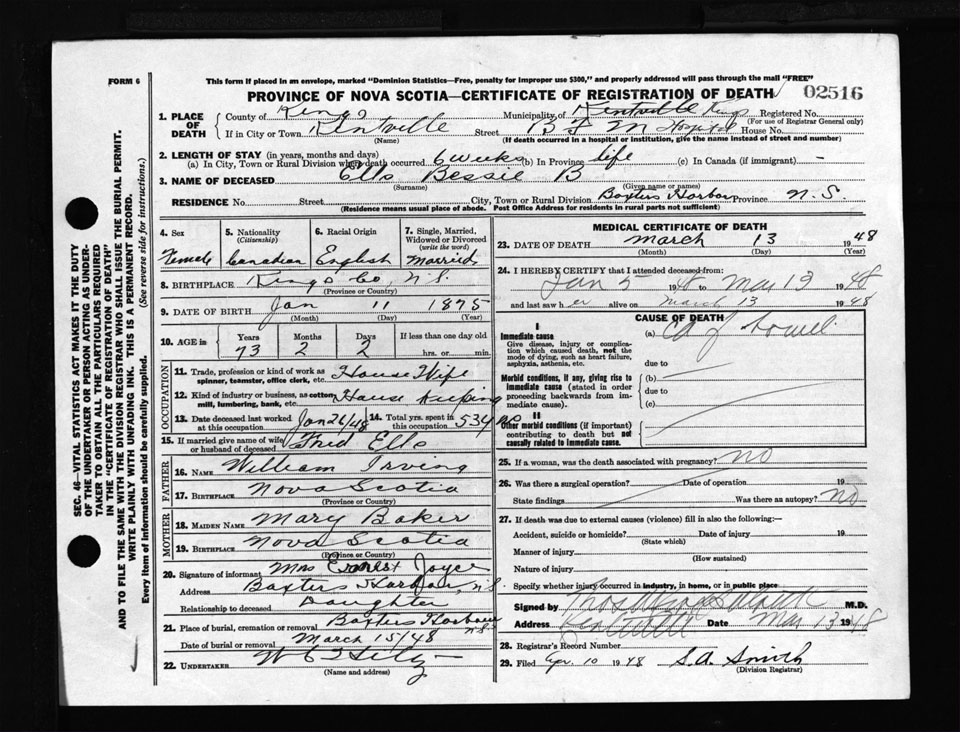 FORM 6
This form if placed in an envelope, marked "Dominion Statistics—Free, penalty for improper use $300," and properly addressed will pass through the mail "FREE"
PROVINCE OF NOVA SCOTIA—CERTIFICATE OF REGISTRATION OF DEATH
02516
1. PLACE OF DEATH
County of Kings Municipality of Kentville Kings Registered No.
(For use of Registrar General only)
If in City or Town Kentville Street B F M Hospital House No.
(Name) (If death occurred in a hospital or institution, give the name instead of street and number)
2. LENGTH OF STAY (in years, months and days)
(a) In City, Town or Rural Division where death occurred 6 weeks (b) In Province life (c) In Canada (if immigrant) -
3. NAME OF DECEASED Ells Bessie B
(Surname) (Given name or names)
RESIDENCE No. Street City, Town or Rural Division Baxters Harbor Province N. S.
(Residence means usual place of abode. Post Office Address for residents in rural parts not sufficient)
4. Sex Female
5. Nationality (Citizenship) Canadian
6. Racial Origin English
7. Single, Married, Widowed or Divorced (write the word) Married
8. BIRTHPLACE Kings Co, N.S.
(Province or Country)
9. DATE OF BIRTH Jan 11 1875
(Month) (Day) (Year)
10. AGE in Years 73 Months 2 Days 2 If less than one day hrs. or min.
OCCUPATION
11. Trade, profession or kind of work as spinner, teamster, office clerk, etc. House Wife
12. Kind of industry or business, as cotton mill, lumbering, bank, etc. House keeping
13. Date deceased last worked at this occupation Jan 26/48
14. Total yrs. spent in this occupation 53 yrs
15. If married give name of wife or husband of deceased Fred Ells
FATHER
16. NAME William Irving
17. BIRTHPLACE Nova Scotia
(Province or Country)
MOTHER
18. MAIDEN NAME Mary Baker
19. BIRTHPLACE Nova Scotia
(Province or Country)
20. Signature of informant Mrs Ernest Joyce
Address Baxters Harbour, N.S
Relationship to deceased Daughter
21. Place of burial, cremation or removal Baxters Harbour N.S.
Date of burial or removal March 15/48
22. UNDERTAKER
(Name and address)
MEDICAL CERTIFICATE OF DEATH
23. DATE OF DEATH March 13 1948
(Month) (Day) (Year)
24. I HEREBY CERTIFY that I attended deceased from:
Jan 5 1948 to Mar 13 1948
and last saw her alive on March 13 1948
CAUSE OF DEATH
I
Immediate cause
Give disease, injury or complication which caused death, not the mode of dying, such as heart failure, asphyxia, asthenia, etc.
(a) Ca of bowel
due to
Morbid conditions, if any, giving rise to immediate cause (stated in order proceeding backwards from immediate cause).
(b)
due to
(c)
II
Other morbid conditions (if important) contributing to death but not causally related to immediate cause.
25. If a woman, was the death associated with pregnancy? no
26. Was there a surgical operation? Date of operation 19
State findings Was there an autopsy? no
27. If death was due to external causes (violence) fill in also the following:—
Accident, suicide or homicide? Date of injury 19
(State which)
Manner of injury
(How sustained)
Nature of injury
Specify whether injury occurred in industry, in home, or in public place
Signed by M.D.
Address Kentville Date Mar 13 1948
28. Registrar's Record Number
29. Filed Apr. 10 1948 S.A. Smith
(Division Registrar)
SEC. 46—VITAL STATISTICS ACT MAKES IT THE DUTY
OF THE UNDERTAKER OR PERSON ACTING AS UNDER-
TAKER TO OBTAIN ALL THE PARTICULARS REQUIRED
IN THE "CERTIFICATE OF REGISTRATION OF DEATH"
AND TO FILE THE SAME WITH THE DIVISION REGISTRAR WHO SHALL ISSUE THE BURIAL PERMIT.
WRITE PLAINLY WITH UNFADING INK. THIS IS A PERMANENT RECORD.
Every item of information should be carefully supplied. (See reverse side for instructions.)